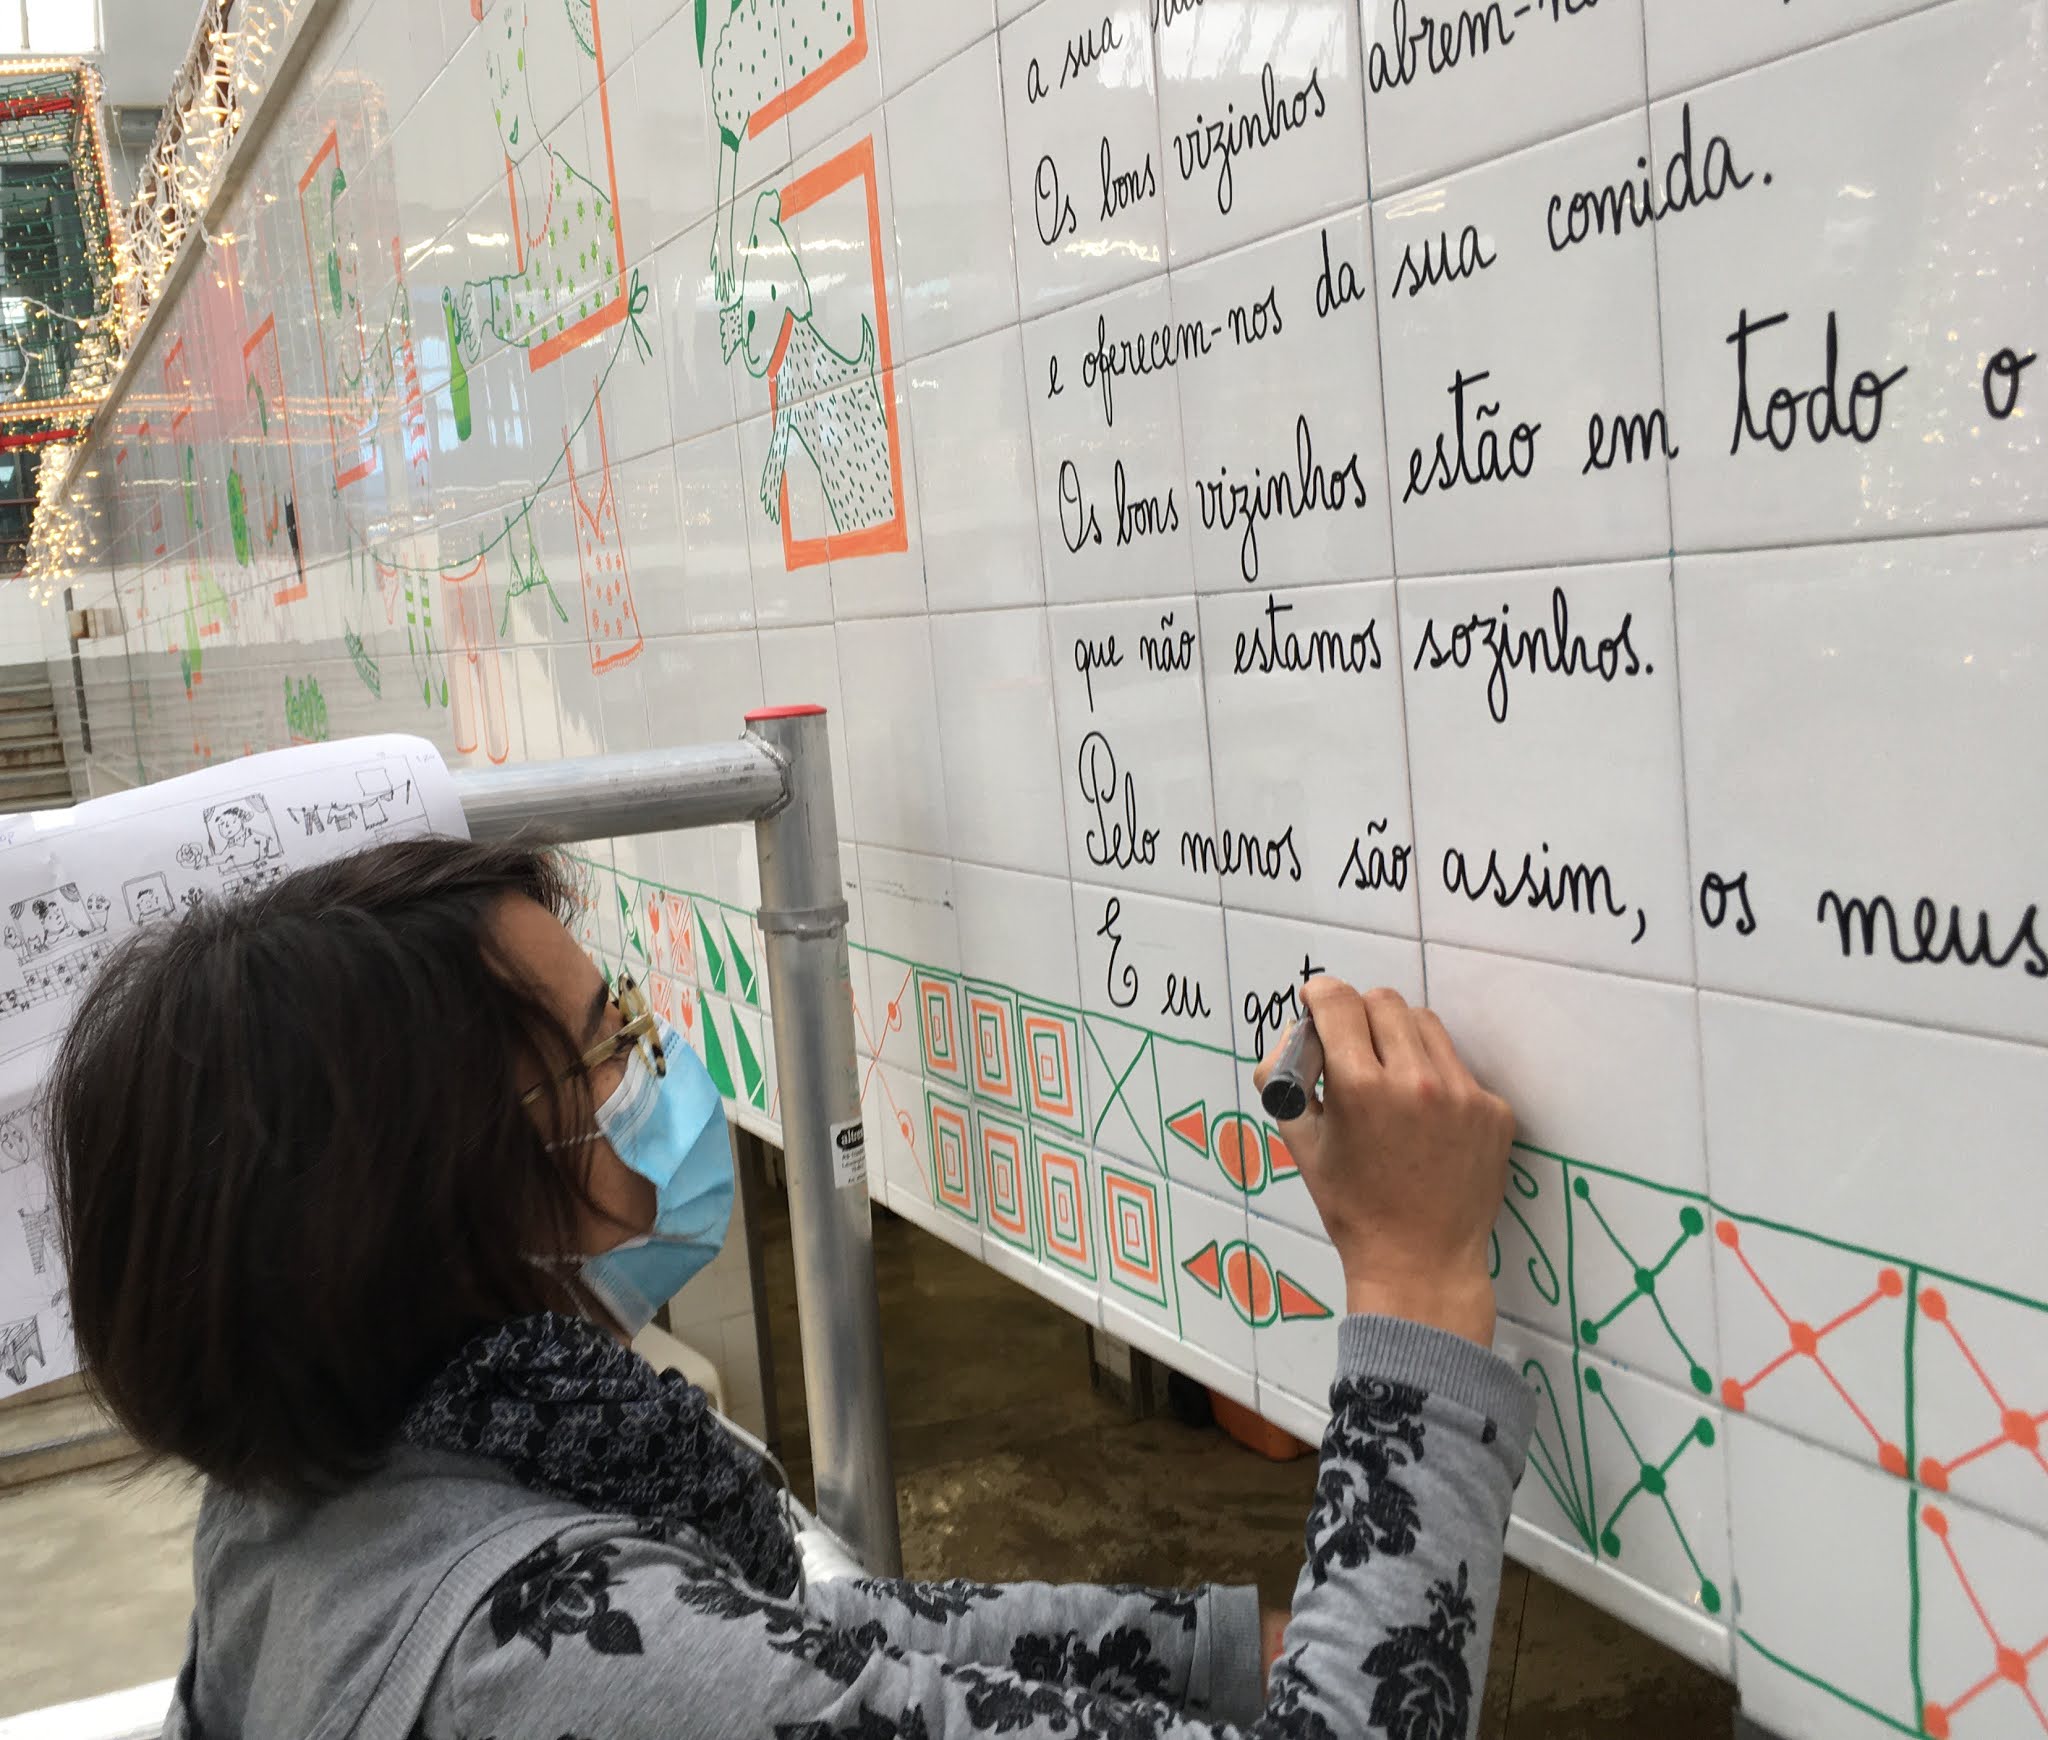 a sua
Os bons vizinhos abrem-n
e oferecem-nos da sua comida.
Os bons vizinhos estão em todo o
que não estamos sozinhos.
Pelo menos são assim, os meus
E eu gost